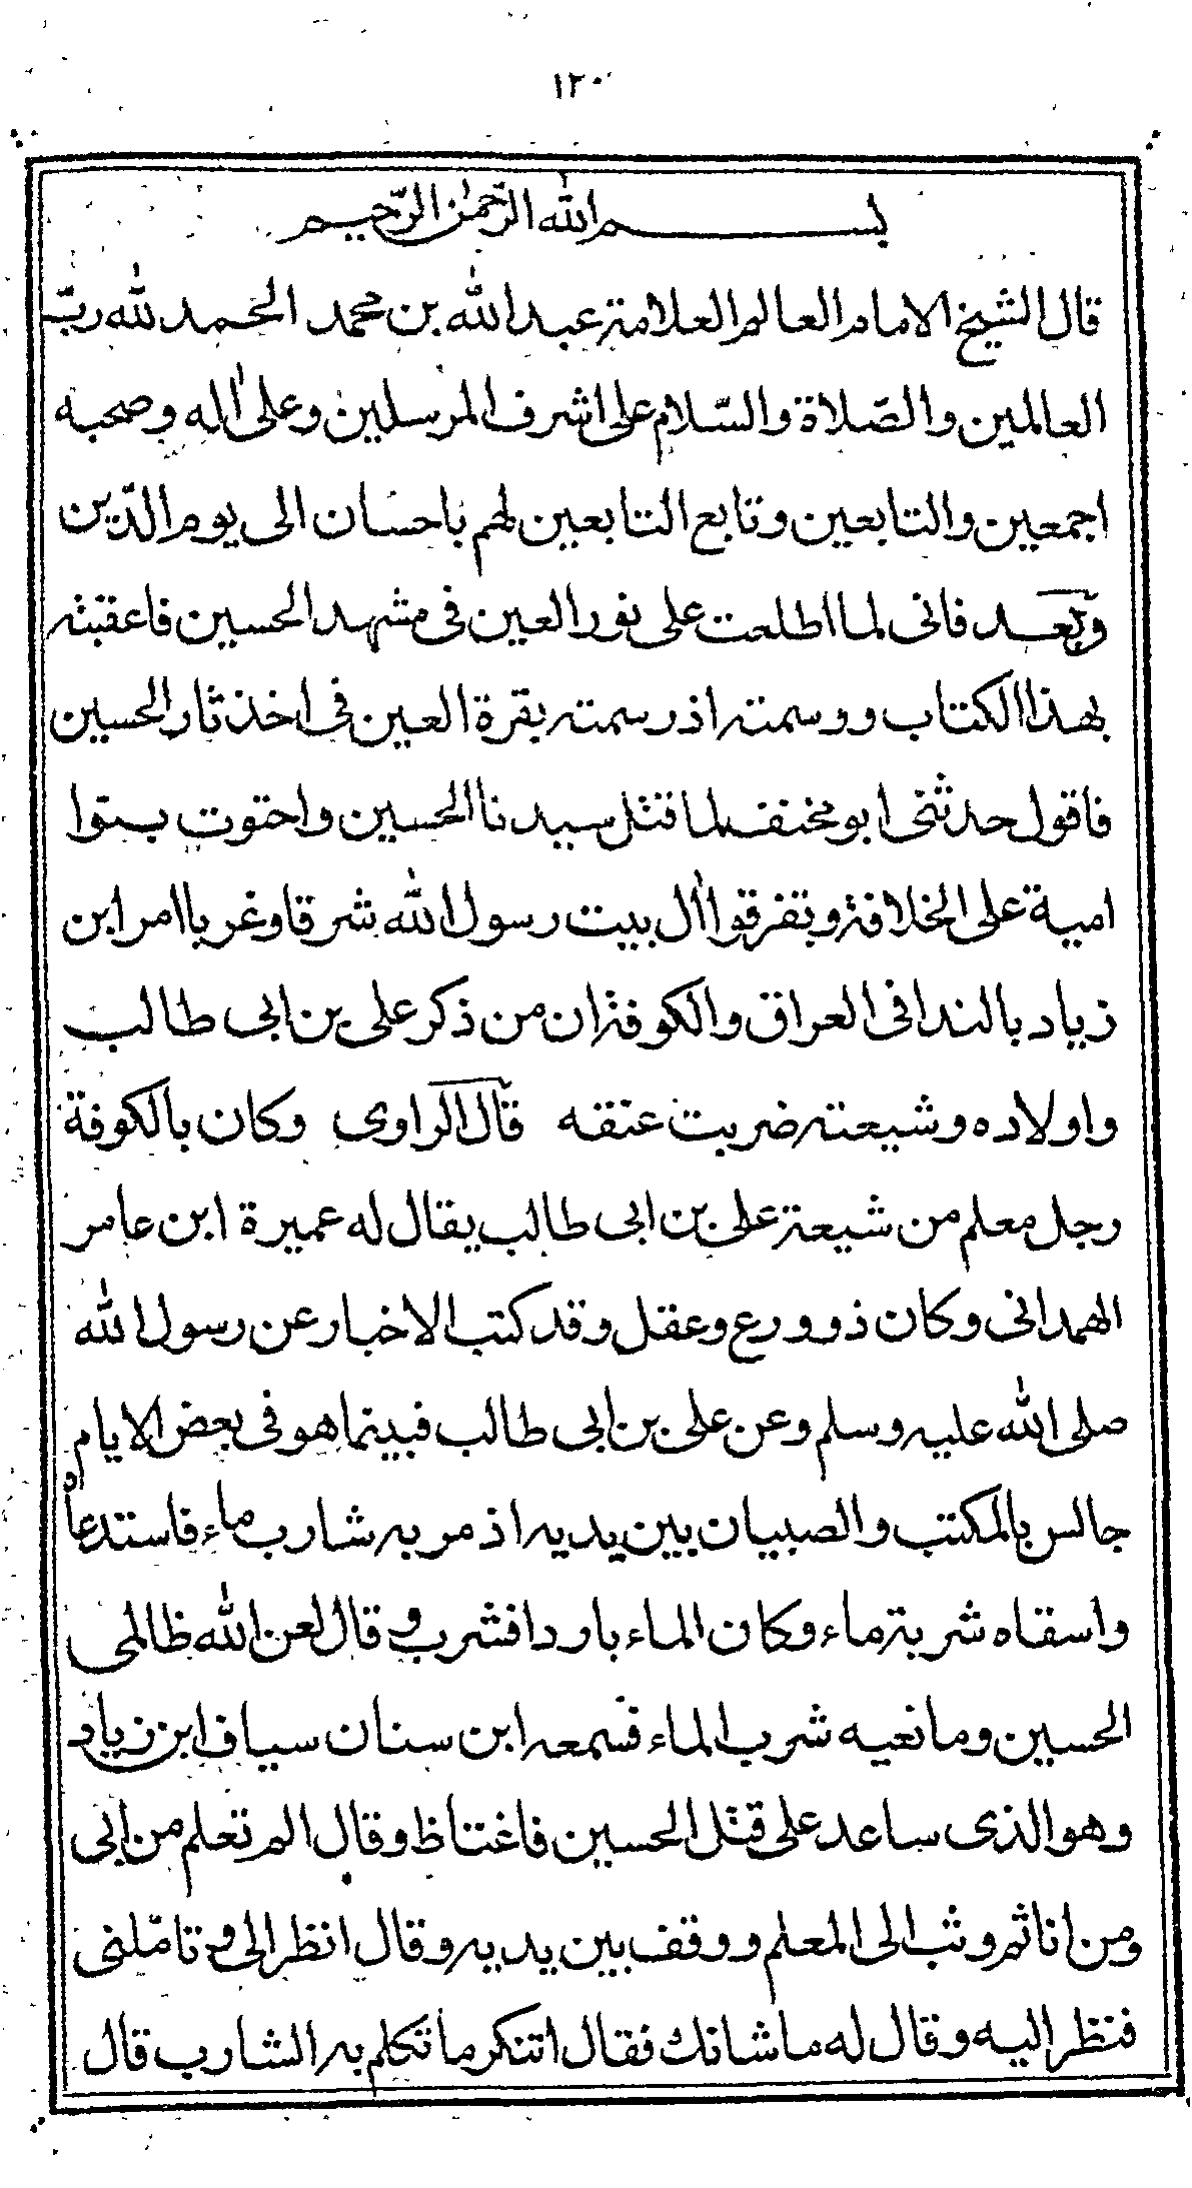 ١٢٠
بسم الله الرّحمٰن الرّحيم
قال الشيخ الامام العالم العلامة عبد الله بن محمد الحمد لله ربّ
العالمين والصّلاة والسّلام على اشرف المرسلين وعلى اٰله وصحبه
اجمعين والتابعين وتابع التابعين لهم باحسان الى يوم الدّين
وبعد فانى لما اطلعت على نور العين فى مشهد الحسين فاعقبته
بهذا الكتاب ووسمته اذ رسمته بقرة العين فى اخذ ثار الحسين
فاقول حدثنى ابو مخنف لما قتل سيدنا الحسين واحتوت بنوا
امية على الخلافة وتفرقوا اٰل بيت رسول الله شرقا وغربا امر ابن
زياد بالندا فى العراق والكوفة ان من ذكر على بن ابى طالب
واولاده وشيعته ضربت عنقه قال الراوى وكان بالكوفة
رجل معلم من شيعة على بن ابى طالب يقال له عميرة ابن عامر
الهمدانى وكان ذو ورع وعقل وقد كتب الاخبار عن رسول الله
صلى الله عليه وسلم وعن على بن ابى طالب فبينما هو فى بعض الايام
جالس بالمكتب والصبيان بين يديه اذ مر به شارب ماء فاستدعاه
واسقاه شربة ماء وكان الماء باردا فشرب وقال لعن الله ظالمى
الحسين ومانعيه شرب الماء فسمعه ابن سنان سياف ابن زياد
وهو الذى ساعد على قتل الحسين فاغتاظ وقال الم تعلم من ابى
ومن انا ثم وثب الى المعلم ووقف بين يديه وقال انظر الى وتامّلنى
فنظر اليه وقال له ما شانك فقال اتنكر ما تكلم به الشارب قال